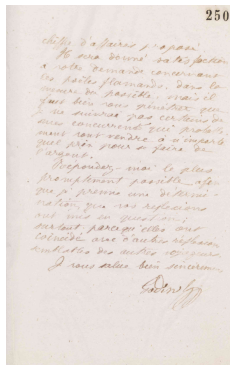 250
chiffre d'affaires proposé.
Il sera donné satisfaction
à votre demande concernant
les poêles flamands, dans la
mesure du possible, mais il
faut bien vous pénétrer que
je ne suivrai pas certains de
mes concurrents qui probable
ment vont vendre à n'importe
quel prix pour se faire de
l'argent.
Répondez-moi le plus
promptement possible afin
que je prenne une détermi
nation, que vos réflexions
ont mis en question,
surtout parce qu'elles ont
coïncidé avec d'autres réflexions
semblables des autres voyageurs.
Je vous salue bien sincèrement
Godin